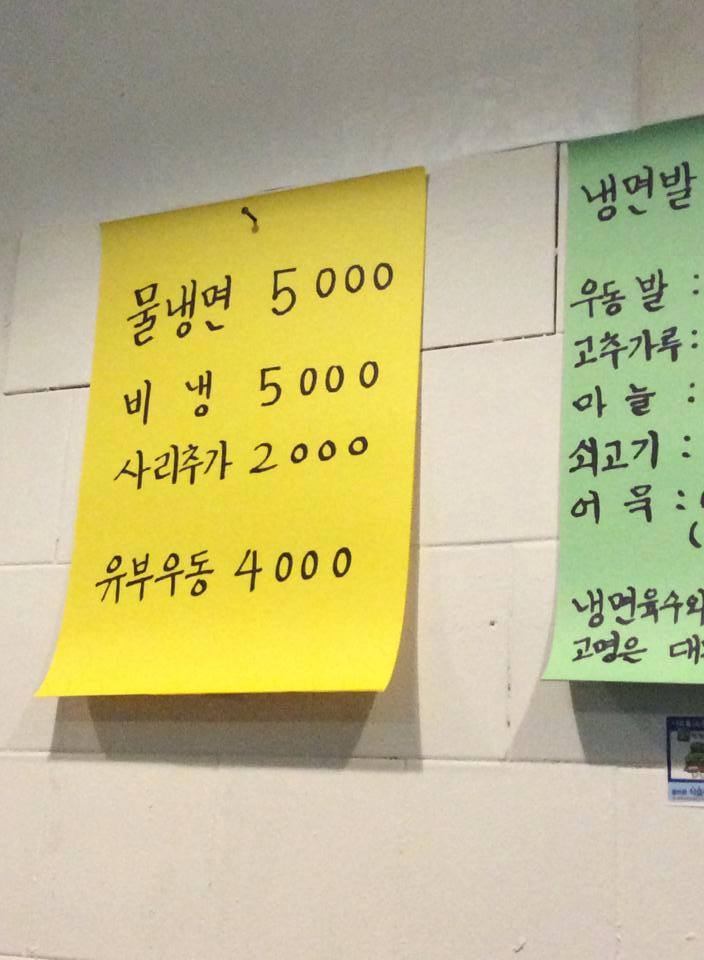 물냉면 5000
비 냉 5000
사리추가 2000
유부우동 4000
냉면발
우동 발 :
고추가루 :
마 늘 :
쇠고기 :
어 묵 : (
(
냉면육수와
고명은 대